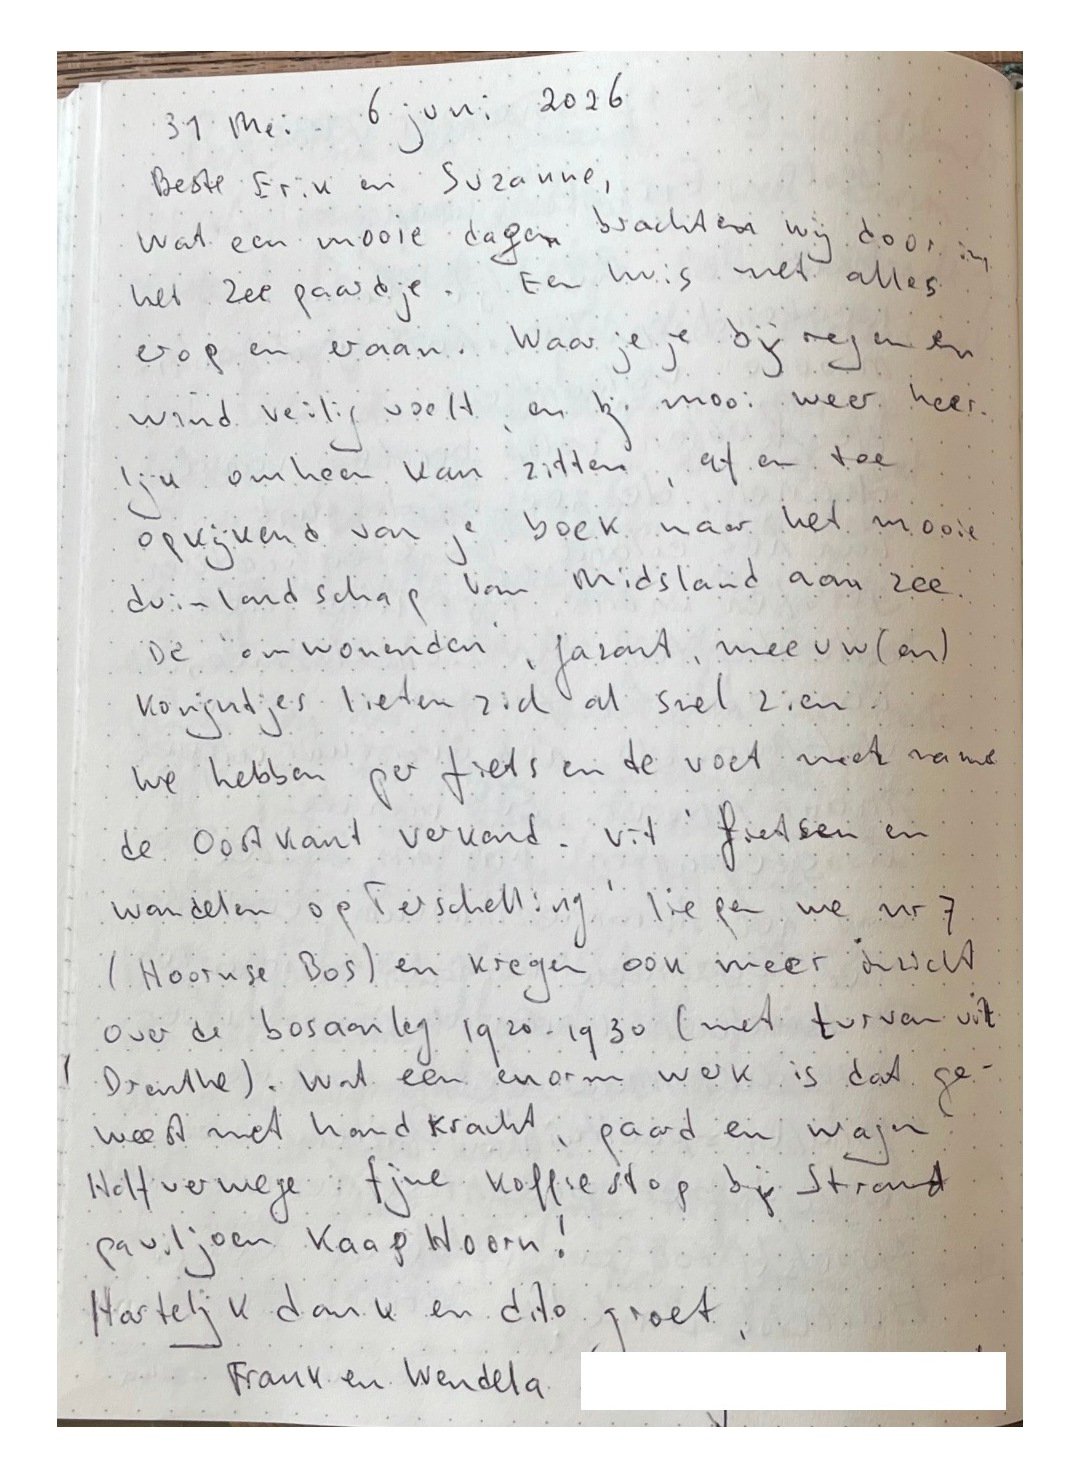 31 Mei - 6 juni 2026
Beste Erik en Suzanne,
Wat een mooie dagen brachten wij door in
het Zeepaardje. Een huis met alles
erop en eraan. Waar je je bij regen en
wind veilig voelt en bij mooi weer heer-
lijk omheen kan zitten, af en toe
opkijkend van je boek naar het mooie
duinlandschap van Midsland aan zee.
De "omwonenden", fazant, meeuw(en)
konijntjes lieten zich al snel zien.
We hebben per fiets en te voet met name
de Oostkant verkend. Uit 'fietsen en
wandelen op Terschelling' liepen we nr 7
(Hoornse Bos) en kregen ook meer inzicht
over de bosaanleg 1920-1930 (met turven uit
Drenthe). Wat een enorm werk is dat ge-
weest met handkracht, paard en wagen
Halfverwege fijne koffiestop bij Strand
paviljoen Kaap Hoorn!
Hartelijk dank en dito groet,
Frank en Wendela